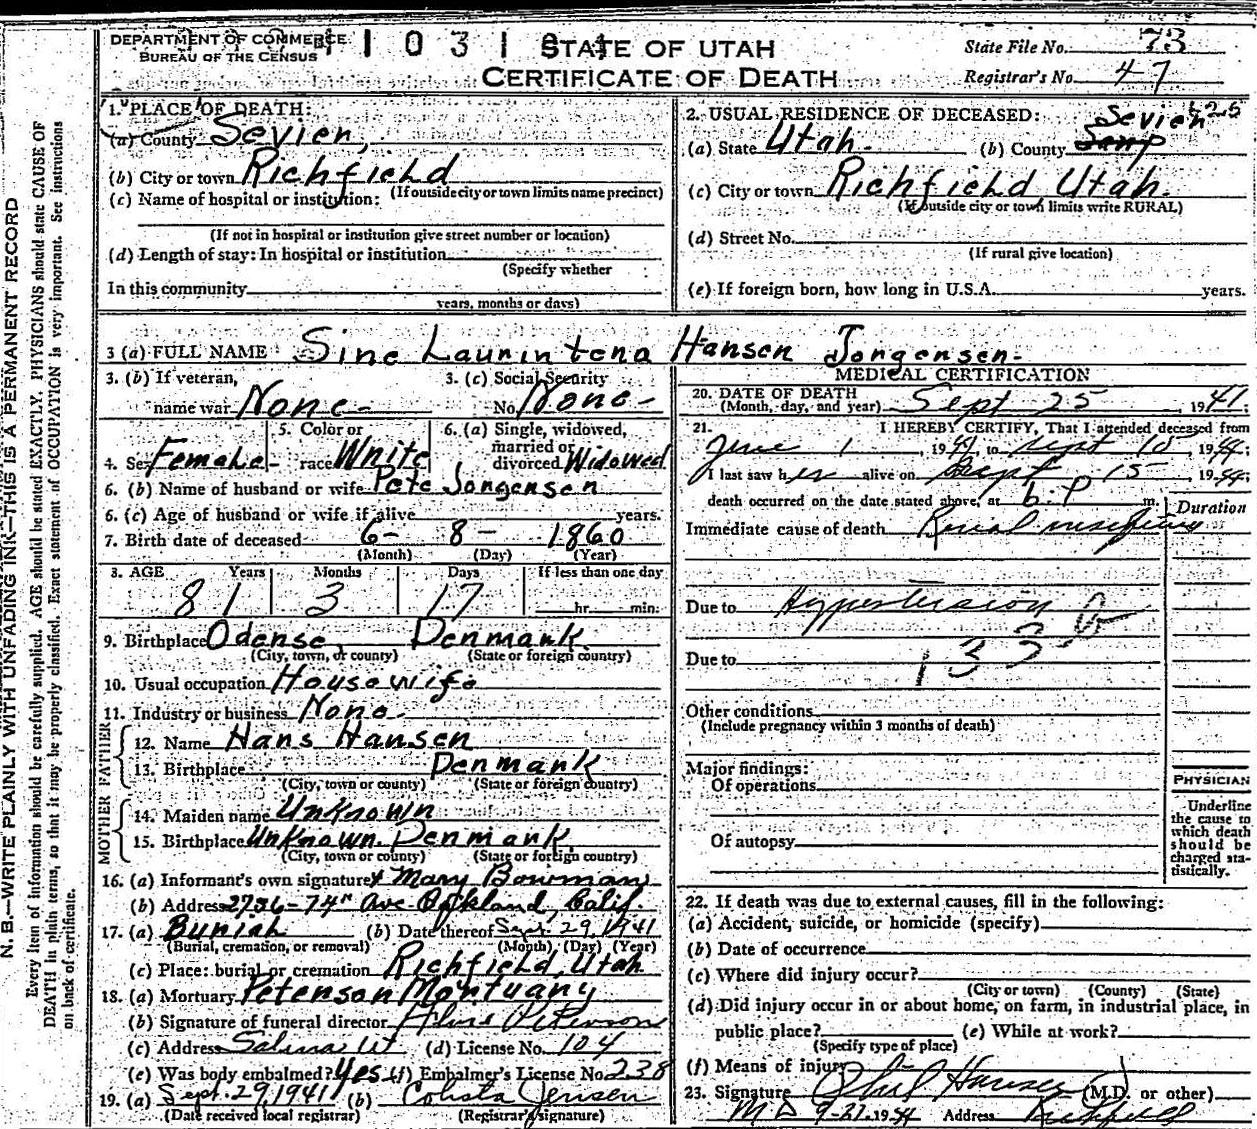 DEPARTMENT OF COMMERCE
BUREAU OF THE CENSUS
STATE OF UTAH
CERTIFICATE OF DEATH
State File No. 73
Registrar's No. 47
1. PLACE OF DEATH:
(a) County Sevier,
(b) City or town Richfield
(If outside city or town limits name precinct)
(c) Name of hospital or institution:
(If not in hospital or institution give street number or location)
(d) Length of stay: In hospital or institution
(Specify whether
In this community
years, months or days)
2. USUAL RESIDENCE OF DECEASED:
(a) State Utah. (b) County Sevier
(c) City or town Richfield Utah.
(If outside city or town limits write RURAL)
(d) Street No.
(If rural give location)
(e) If foreign born, how long in U.S.A. years.
3 (a) FULL NAME Sine Laurintena Hansen Jorgensen-
3. (b) If veteran,
name war None-
3. (c) Social Security
No. None-
4. Sex Female- 5. Color or race White 6. (a) Single, widowed, married or divorced Widowed
6. (b) Name of husband or wife Pete Jorgensen
6. (c) Age of husband or wife if alive years.
7. Birth date of deceased 6- 8- 1860
(Month) (Day) (Year)
8. AGE Years Months Days If less than one day
81 3 17 hr. min.
9. Birthplace Odense, Denmark.
(City, town, or county) (State or foreign country)
10. Usual occupation Housewife
11. Industry or business None-
FATHER
12. Name Hans Hansen
13. Birthplace Denmark
(City, town or county) (State or foreign country)
MOTHER
14. Maiden name Unknown
15. Birthplace Unknown. Denmark.
(City, town or county) (State or foreign country)
16. (a) Informant's own signature x Mary Bowman
(b) Address 2736-74th Ave Oakland, Calif
17. (a) Burial (b) Date thereof Sept. 29, 1941
(Burial, cremation, or removal) (Month) (Day) (Year)
(c) Place: burial or cremation Richfield, Utah
18. (a) Mortuary Peterson Mortuary
(b) Signature of funeral director Peterson
(c) Address Salina Ut (d) License No. 104
(e) Was body embalmed? Yes (f) Embalmer's License No. 238
19. (a) Sept. 29, 1941 (b) Jensen
(Date received local registrar) (Registrar's signature)
MEDICAL CERTIFICATION
20. DATE OF DEATH
(Month, day, and year) Sept 25, 1941
21. I HEREBY CERTIFY, That I attended deceased from
June 1, 1941, to Sept 15, 1944;
I last saw her alive on Sept 15, 1944;
death occurred on the date stated above, at 6:P m.
Duration
Immediate cause of death
Due to Hypertension
Due to
Other conditions
(Include pregnancy within 3 months of death)
Major findings:
Of operations
Of autopsy
PHYSICIAN
Underline
the cause to
which death
should be
charged sta-
tistically.
22. If death was due to external causes, fill in the following:
(a) Accident, suicide, or homicide (specify)
(b) Date of occurrence
(c) Where did injury occur?
(City or town) (County) (State)
(d) Did injury occur in or about home, on farm, in industrial place, in
public place? (e) While at work?
(Specify type of place)
(f) Means of injury
23. Signature Hansen (M.D. or other)
M D 9-27-1944 Address Richfield
N. B.—WRITE PLAINLY WITH UNFADING INK—THIS IS A PERMANENT RECORD
Every item of information should be carefully supplied. AGE should be stated EXACTLY. PHYSICIANS should state CAUSE OF
DEATH in plain terms, so that it may be properly classified. Exact statement of OCCUPATION is very important. See instructions
on back of certificate.